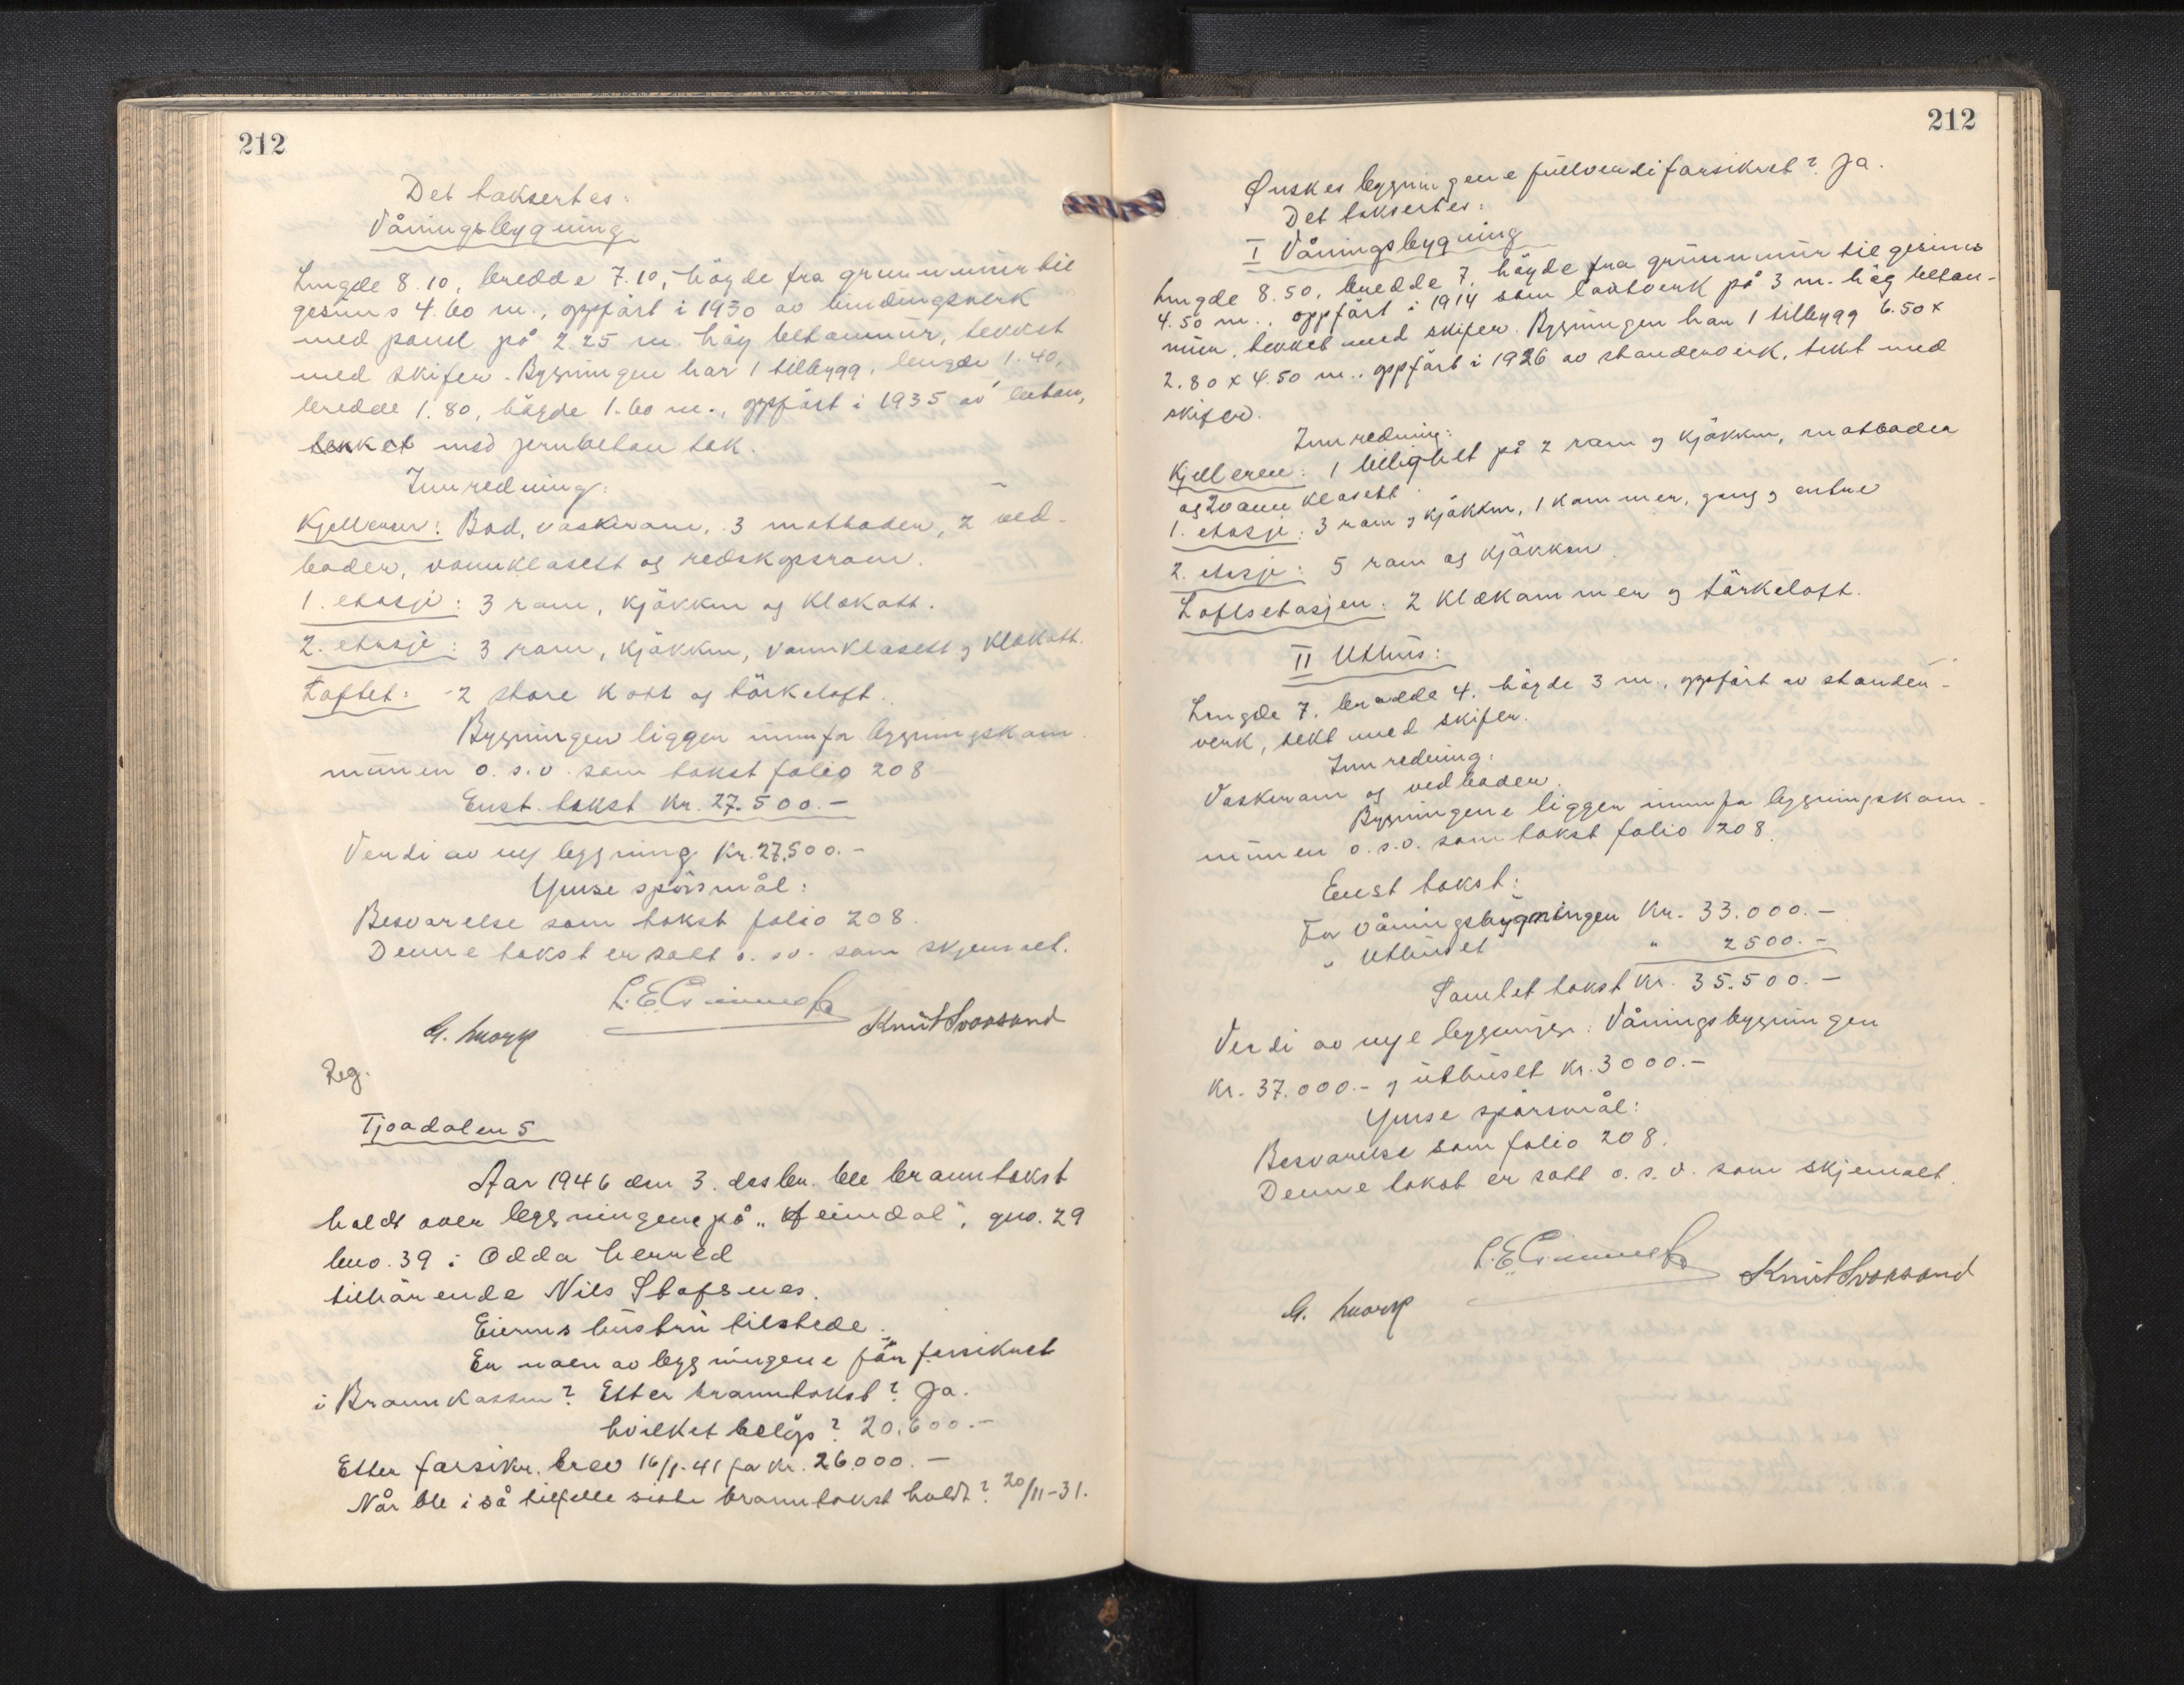 212
Det taksertes:
Våningsbygning.
Lengde 8.10, bredde 7.10, höyde fra grunnmur til
gesims 4.60 m., oppfört i 1930 av bindingsverk
med panel på 2.25 m. höy betonmur, tekket
med skifer. Bygningen har 1 tilbygg, lengde 1.40,
bredde 1.80, höyde 1.60 m., oppfört i 1935 av beton,
tekket med jernbeton tak.
Innredning:
Kjelleren: Bad, vaskerom, 3 matboder, 2 ved-
boder, vannklosett og redskapsrom.
1. etasje: 3 rom, kjökken og klekott.
2. etasje: 3 rom, kjökken, vannklosett og klekott.
Loftet: 2 store kott og törkeloft.
Bygningen ligger innfor bygningskom-
munen o.s.v. som takst folio 208
Enst. takst Kr. 27.500.-
Verdi av ny bygning Kr. 27.500.-
Ymse spörsmål:
Besvarelse som takst folio 208.
Denne takst er satt o.s.v. som skjemaet.
Knut Svartsund
Reg.
Tjoadalen 5
Aar 1946 den 3. desbr. ble branntakst
holdt over bygningene på "Heimdal", gno. 29
bno. 39 i Odda herred
tilhörende Nils Stafsnes.
Eierens hustru tilstede.
Er noen av bygningene för forsikret
i Brannkassen? Etter branntakst? Ja.
hvilket belöp? 20.600.-
Etter forsikr. brev 16/1-41 for kr. 26.000.-
Når ble i så tilfelle siste branntakst holdt? 20/11-31.
212
Önskes bygningene fullverdiforsikret? Ja.
Det taksertes:
I Våningsbygning
Lengde 8.50, bredde 7, höyde fra grunnmur til gesims
4.50 m., oppfört i 1914 som laftverk på 3 m. höy beton-
mur, tekket med skifer. Bygningen har 1 tilbygg 6.50 x
2.80 x 4.50 m., oppfört i 1926 av stenderverk, tekt med
skifer.
Innredning:
Kjelleren: 1 leilighet på 2 rom og kjökken, matboder
og vannklosett
1. etasje: 3 rom og kjökken, 1 kammer, gang og entre
2. etasje: 5 rom og kjökken.
Loftsetasjen: 2 klekammer og törkeloft.
II Uthus:
Lengde 7, bredde 4, höyde 3 m., oppfört av stender-
verk, tekt med skifer.
Innredning:
Vaskerom og vedboder.
Bygningene ligger innfor bygningskom-
munen o.s.v. som takst folio 208.
Enst takst:
For våningsbygningen Kr. 33.000.-
" Uthuset " 2500.-
Samlet takst kr. 35.500.-
Verdi av nye bygninger: Våningsbygningen
Kr. 37.000.- og uthuset kr. 3000.-
Ymse spörsmål:
Besvarelse som folio 208.
Denne takst er satt o.s.v. som skjemaet.
Knut Svartsund